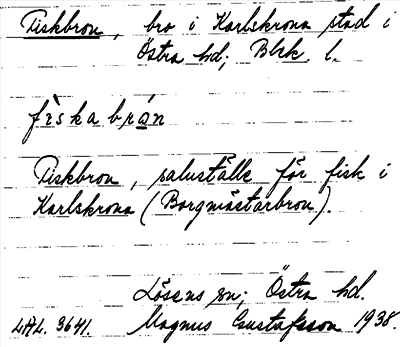 Fiskbron, bro i Karlskrona stad i
Östra hd; Blek. l.
fiskabrån
Fiskbron, saluställe för fisk i
Karlskrona (Borgmästarbron).
Lösens sn; Östra hd.
LAL. 3641. Magnus Gustafsson 1938.